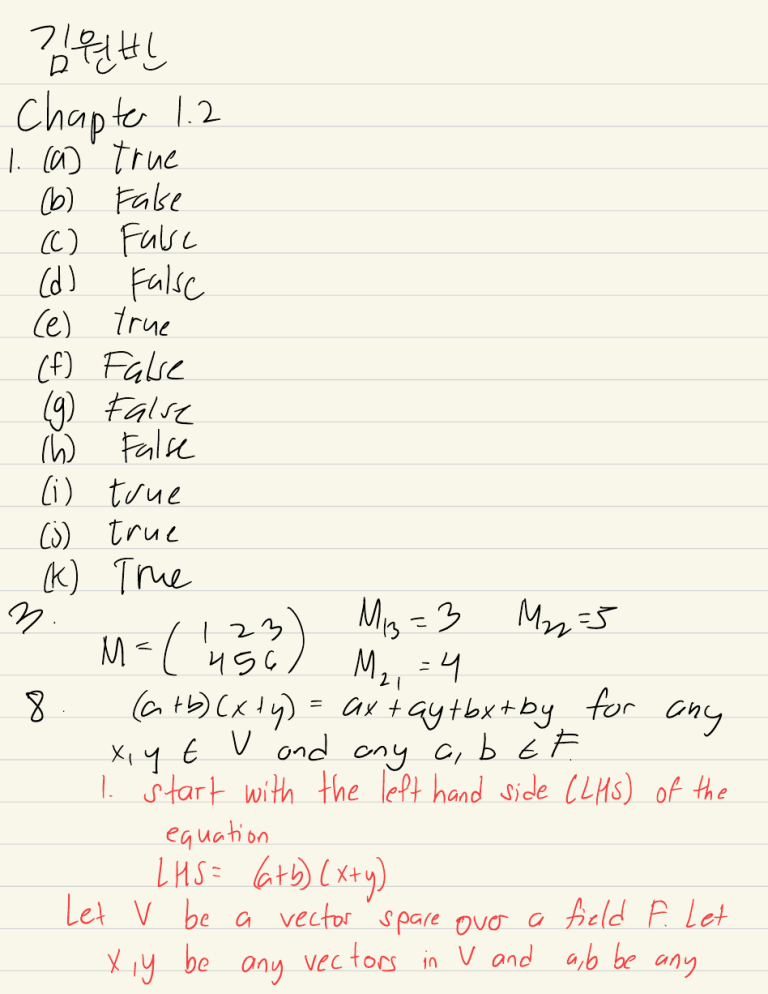 김원빈
Chapter 1.2
1. (a) true
(b) False
(c) False
(d) False
(e) true
(f) False
(g) False
(h) False
(i) true
(j) true
(k) True
3. M = ( 1 2 3 M₁₃ = 3 M₂₂ = 5
4 5 6 ) M₂₁ = 4
8. (a+b)(x+y) = ax+ay+bx+by for any
x, y ∈ V and any a, b ∈ F.
1. start with the left hand side (LHS) of the
equation
LHS= (a+b)(x+y)
Let V be a vector space over a field F. Let
x, y be any vectors in V and a,b be any